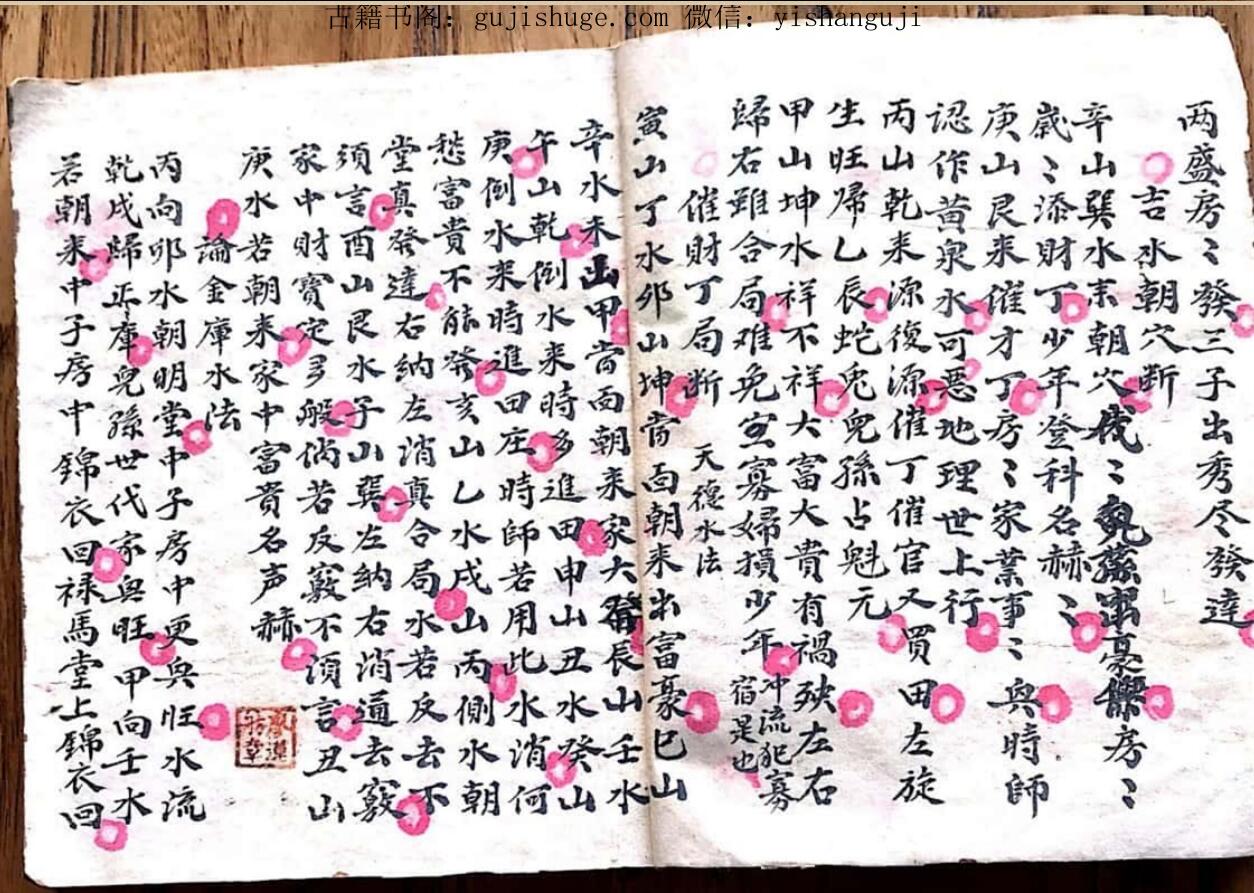 古籍书阁：gujishuge.com 微信：yishanguji
两盛房〻發三子出秀尽發達
吉水朝穴断
辛山巽水来朝穴代〻兒孫富豪房〻
歲〻添財丁少年登科名赫〻
庚山艮来催才丁房〻家業事〻興時師
認作黄泉水可惡地理世上行
丙山乾来源復源催丁催官又買田左旋
生旺帰乙辰蛇兎兒孫占魁元
甲山坤水祥不祥大富大貴有禍殃左右
歸右雖合局难免寡婦損少年冲流犯寡宿是也
催財丁局断 天德水法
寅山丁水卯山坤當面朝来出富豪巳山
辛水未山甲當面朝来家大發辰山壬水
午山乾倒水来時多進田申山丑水癸山
庚倒水来時進田庄時師若用此水消何
愁富貴不能發亥山乙水戌山丙側水朝
堂真發達右納左消真合局水若反去不
須言酉山艮水子山巽左納右消通去竅
家中財寶定多般倘若反竅不須言丑山
庚水若朝来家中富貴名声赫
論金庫水法
丙向卯水朝明堂中子房中更興旺水流
乾戌歸正庫兒孫世代家興旺甲向壬水
若朝来中子房中錦衣回禄馬堂上錦衣回